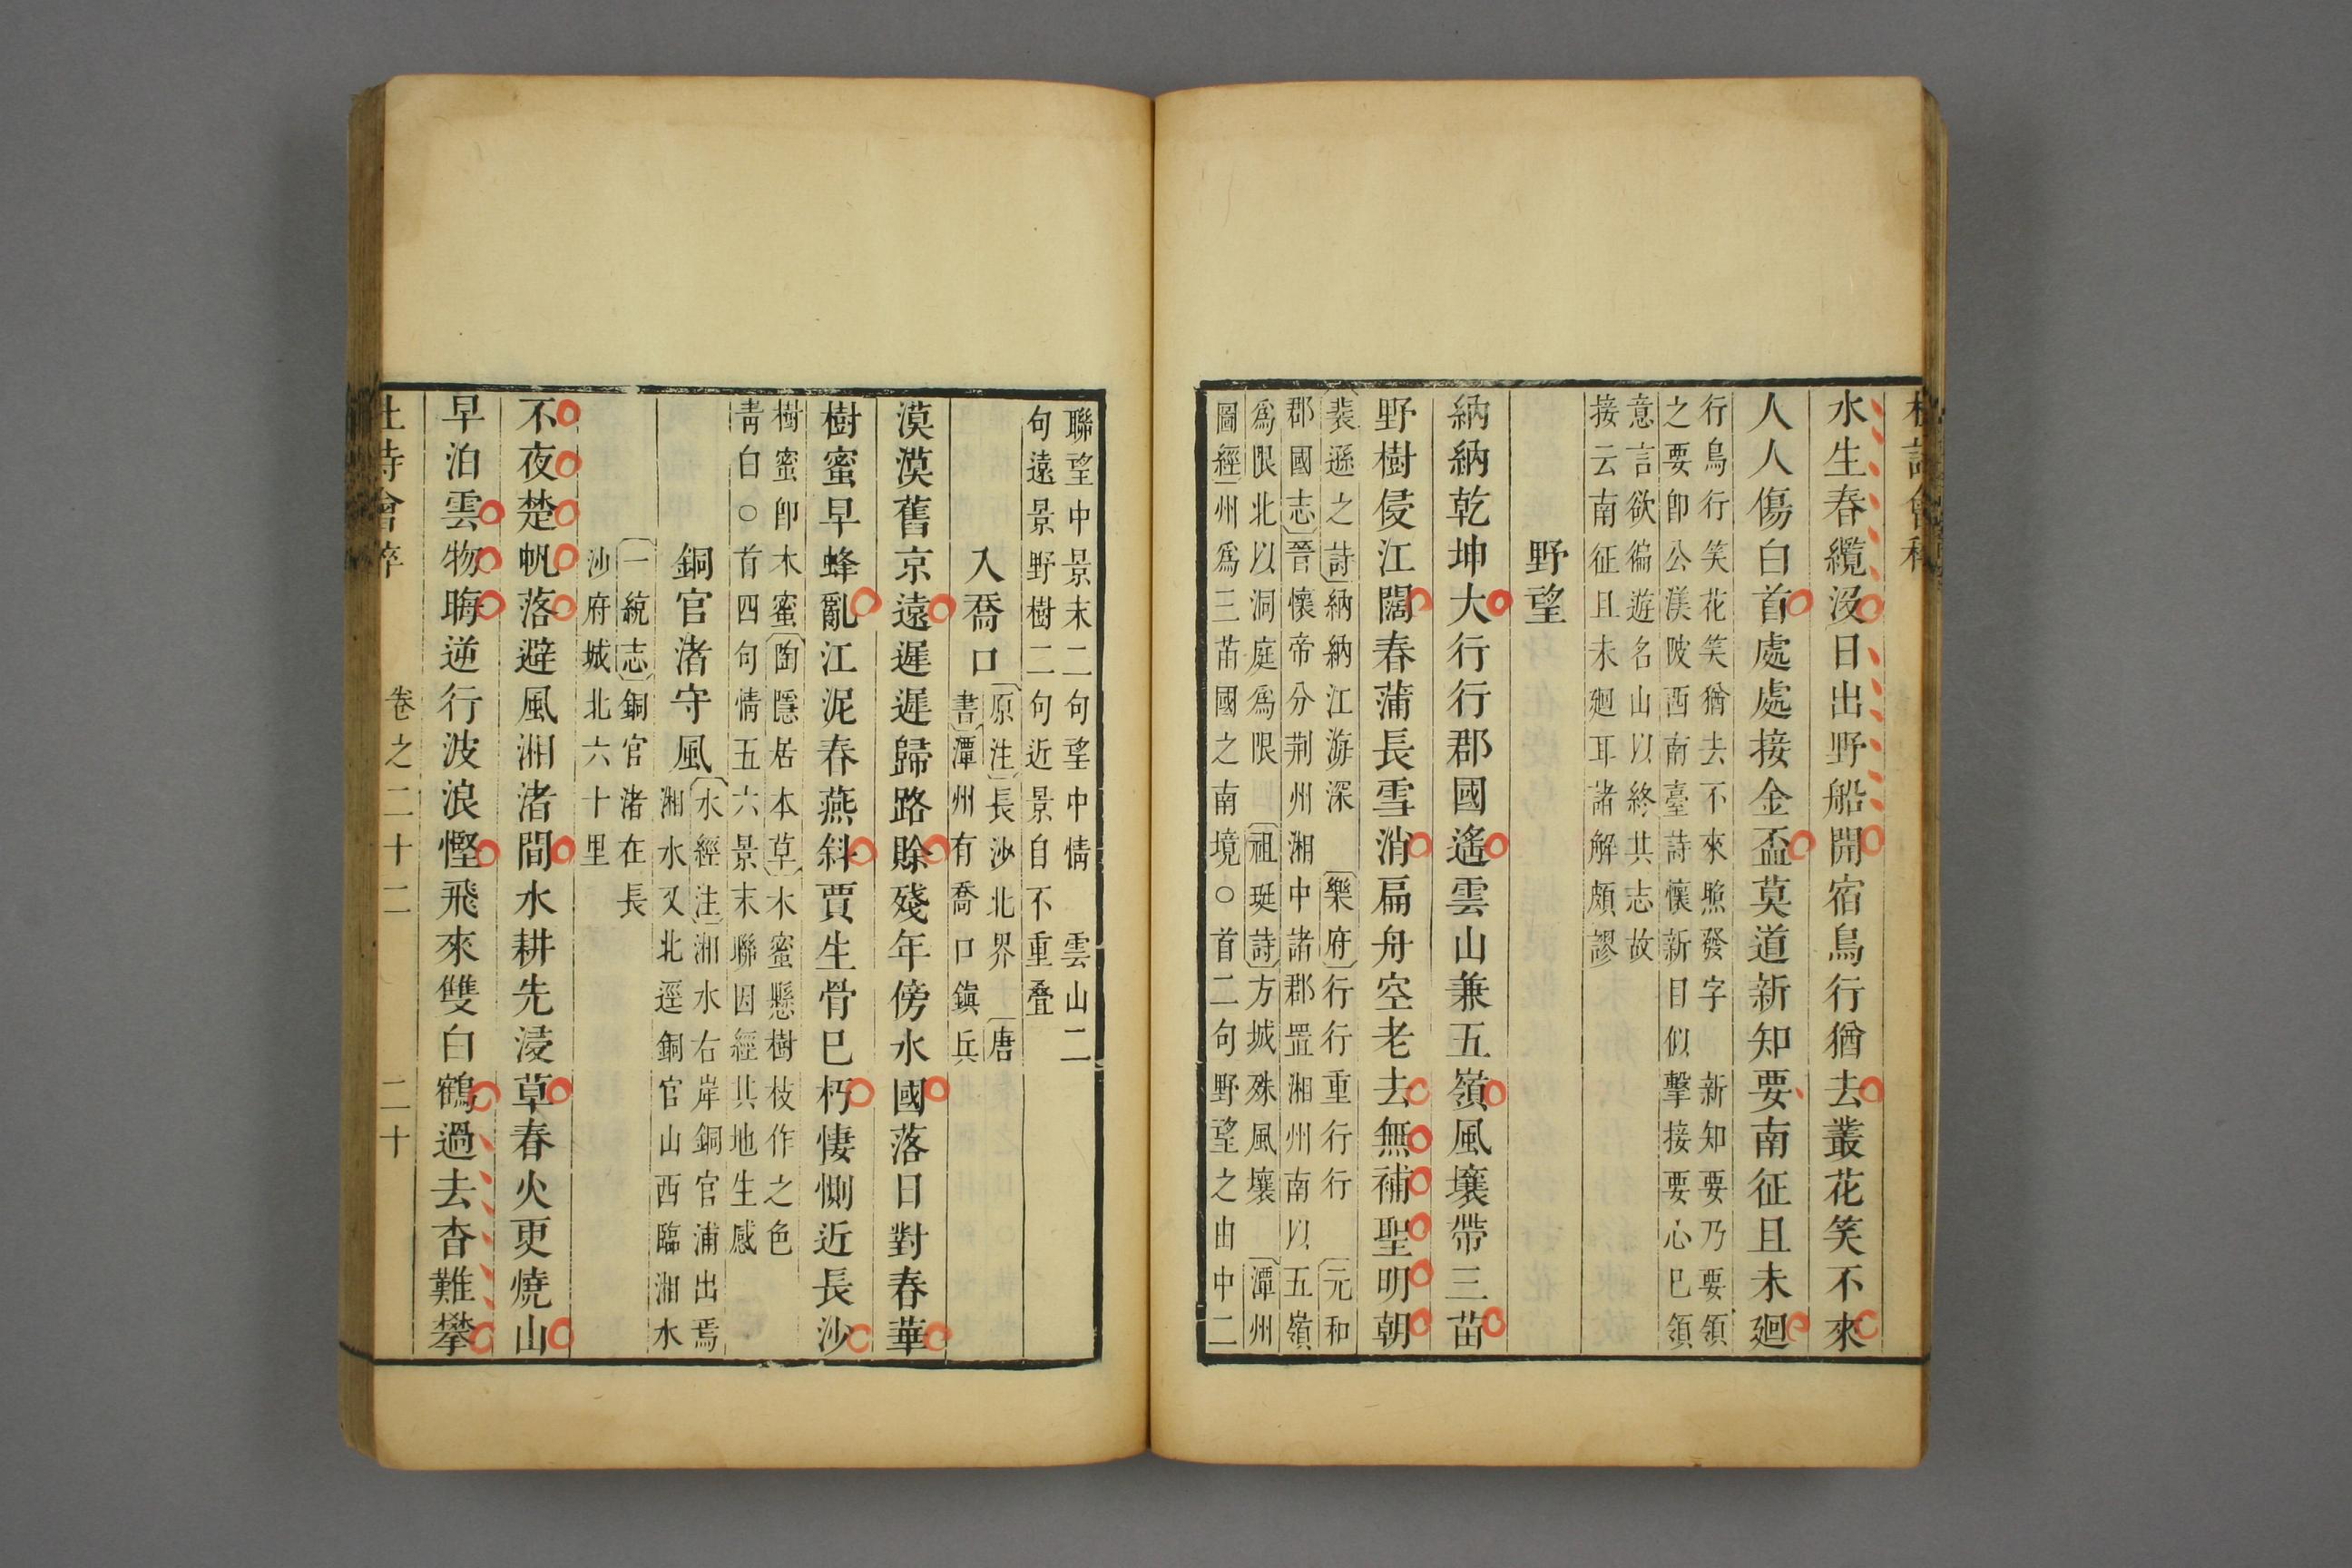 水生春纜沒日出野船開宿鳥行猶去叢花笑不來
人人傷白首處處接金盃莫道新知要南征且未廻
行鳥行笑花笑猶去不來㷩發字　新知要乃要領
之要卽公渼陂西南臺詩懷新目似擊接要心已領
意言欲徧遊名山以終其志故
接云南征且未廻耳諸解頗謬
野望
納納乾坤大行行郡國遙雲山兼五嶺風壤帶三苗
野樹侵江闊春蒲長雪消扁舟空老去無補聖明朝
裴遜之詩納納江海深　樂府行行重行行　元和
郡國志晉懷帝分荆州湘中諸郡置湘州南以五嶺
爲限北以洞庭爲限　祖珽詩方城殊風壤　潭州
圖經州爲三苗國之南境○首二句野望之由中二
聯望中景末二句望中情　雲山二
句遠景野樹二句近景自不重疊
入喬口
原注長沙北界　唐
書潭州有喬口鎮兵
漠漠舊京遠遲遲歸路賒殘年傍水國落日對春華
樹蜜早蜂亂江泥春燕斜賈生骨已朽悽惻近長沙
樹蜜卽木蜜陶隱居本草木蜜懸樹枝作之色
靑白○首四句情五六景末聯因經其地生感
銅官渚守風
水經注湘水右岸銅官浦出焉
湘水又北逕銅官山西臨湘水
一統志銅官渚在長
沙府城北六十里
不夜楚帆落避風湘渚間水耕先浸草春火更燒山
早泊雲物晦逆行波浪慳飛來雙白鶴過去杳難攀
卷之二十二　二十